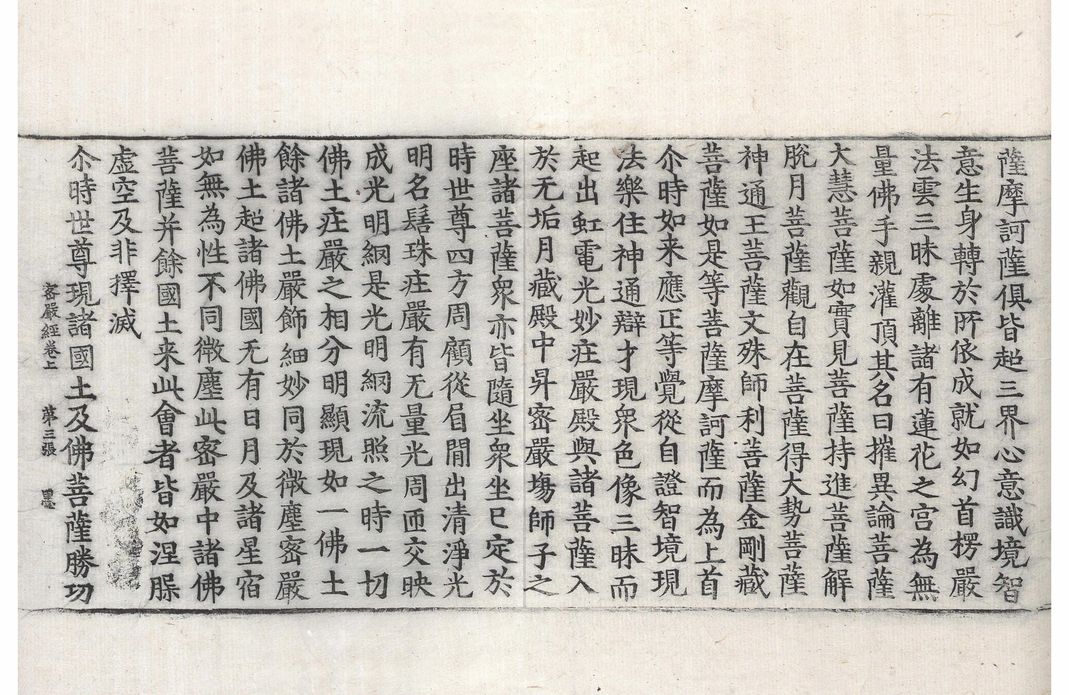 薩摩訶薩俱皆超三界心意識境智
意生身轉於所依成就如幻首楞嚴
法雲三昧處離諸有蓮花之宮為無
量佛手親灌頂其名曰摧異論菩薩
大慧菩薩如實見菩薩持進菩薩解
脫月菩薩觀自在菩薩得大勢菩薩
神通王菩薩文殊師利菩薩金剛藏
菩薩如是等菩薩摩訶薩而為上首
尒時如来應正等覺從自證智境現
法樂住神通辯才現衆色像三昧而
起出虹電光妙庄嚴殿與諸菩薩入
於无垢月藏殿中昇密嚴塲師子之
座諸菩薩衆亦皆隨坐衆坐巳定於
時世尊四方周顧從眉間出清淨光
明名髻珠庄嚴有无量光周匝交映
成光明網是光明網流照之時一切
佛土庄嚴之相分明顯現如一佛土
餘諸佛土嚴飾細妙同於微塵密嚴
佛土超諸佛國无有日月及諸星宿
如無為性不同微塵此密嚴中諸佛
菩薩并餘國土来此會者皆如涅槃
虛空及非擇滅
尒時世尊現諸國土及佛菩薩勝功
密嚴經卷上 第三張 墨